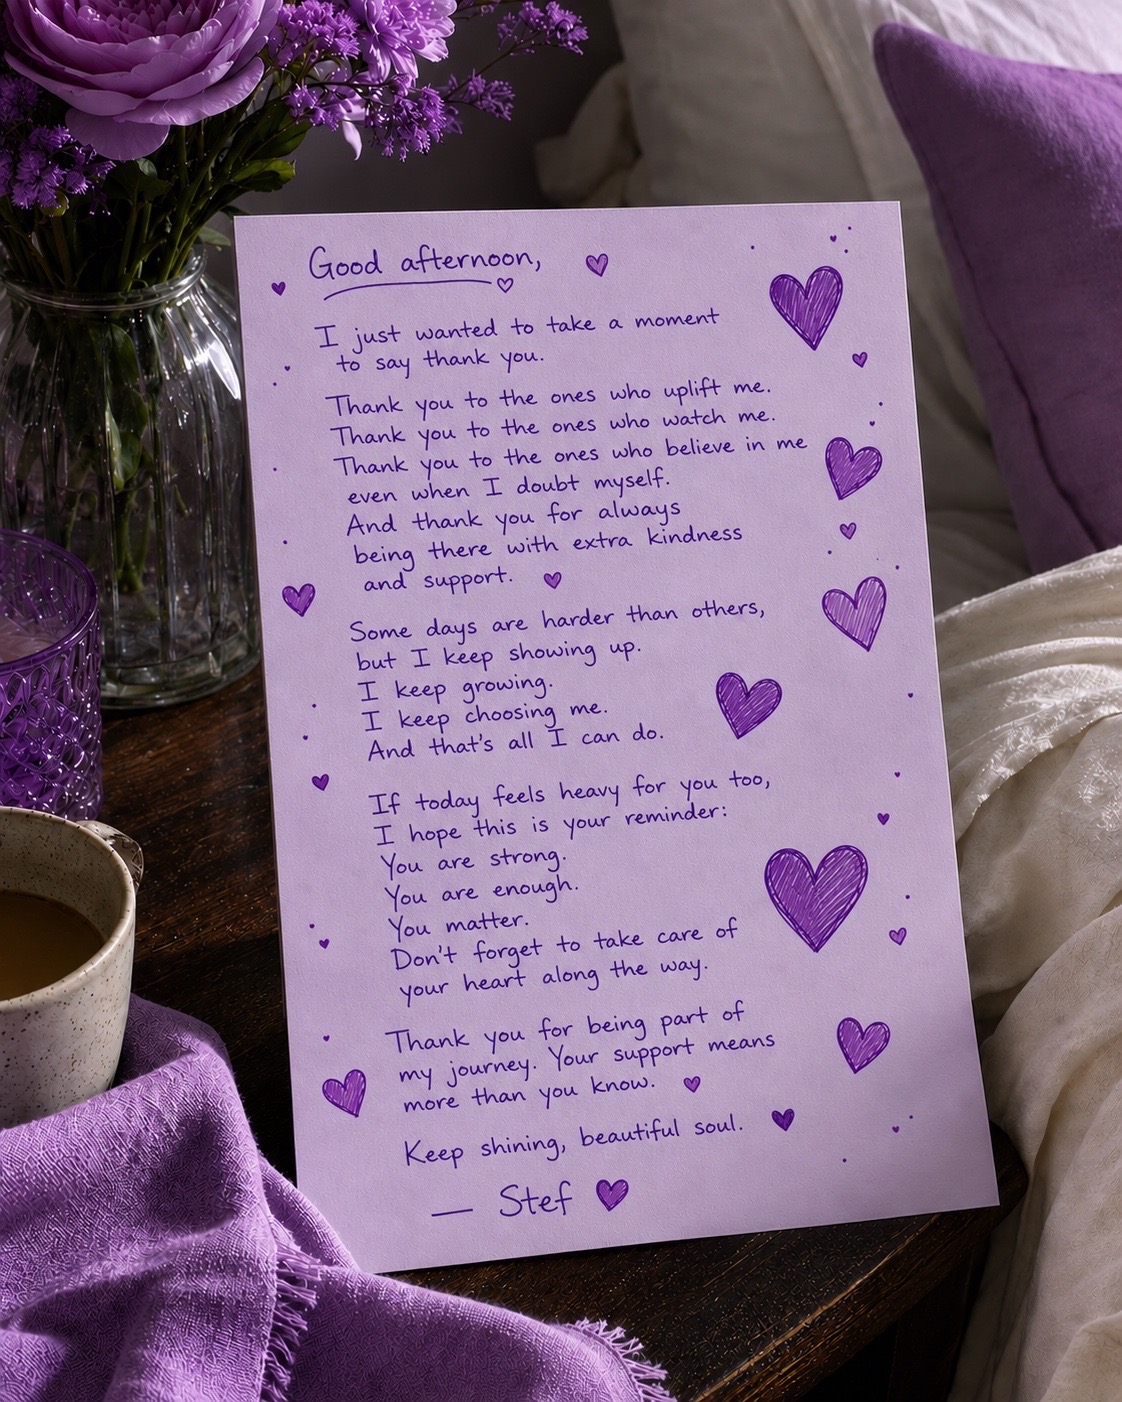 Good afternoon,
I just wanted to take a moment
to say thank you.
Thank you to the ones who uplift me.
Thank you to the ones who watch me.
Thank you to the ones who believe in me
even when I doubt myself.
And thank you for always
being there with extra kindness
and support.
Some days are harder than others,
but I keep showing up.
I keep growing.
I keep choosing me.
And that's all I can do.
If today feels heavy for you too,
I hope this is your reminder:
You are strong.
You are enough.
You matter.
Don't forget to take care of
your heart along the way.
Thank you for being part of
my journey. Your support means
more than you know.
Keep shining, beautiful soul.
— Stef